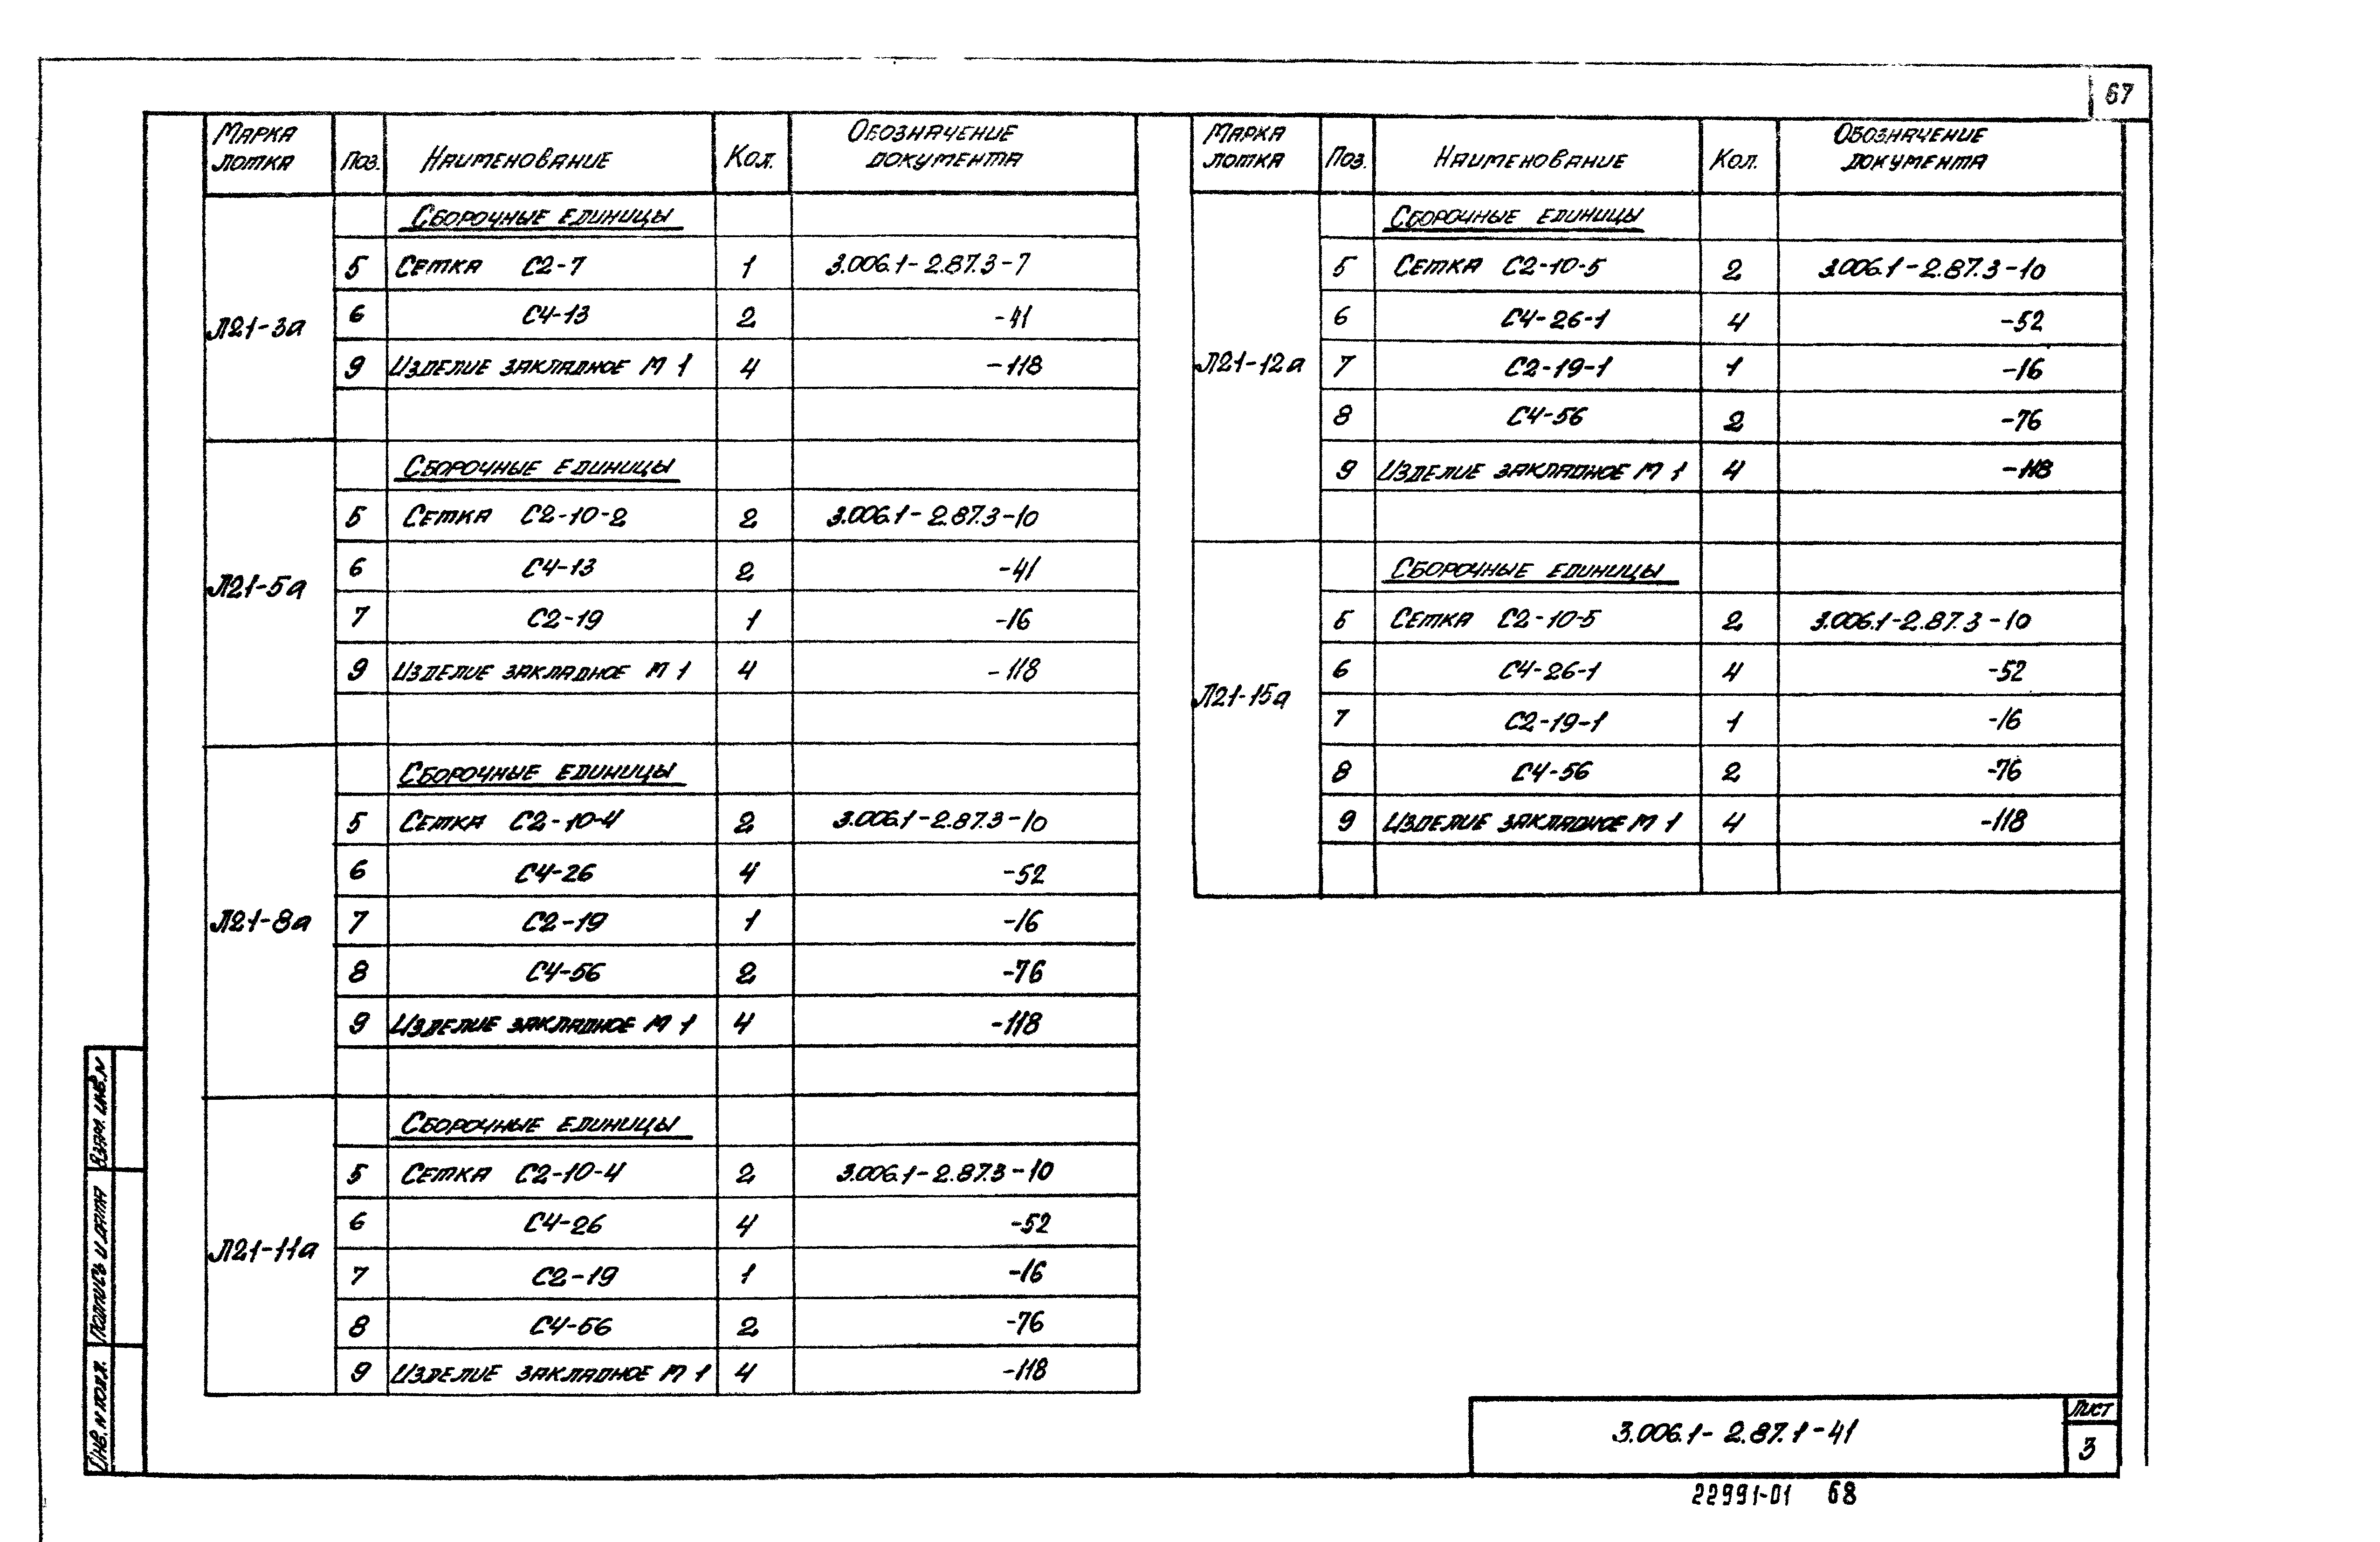 67
Марка лотка Поз. Наименование Кол. Обозначение документа
Сборочные единицы
Л21-3а
5 Сетка С2-7 1 3.006.1-2.87.3-7
6 С4-13 2 -41
9 Изделие закладное М 1 4 -118
Сборочные единицы
Л21-5а
5 Сетка С2-10-2 2 3.006.1-2.87.3-10
6 С4-13 2 -41
7 С2-19 1 -16
9 Изделие закладное М 1 4 -118
Сборочные единицы
Л21-8а
5 Сетка С2-10-4 2 3.006.1-2.87.3-10
6 С4-26 4 -52
7 С2-19 1 -16
8 С4-56 2 -76
9 Изделие закладное М 1 4 -118
Сборочные единицы
Л21-11а
5 Сетка С2-10-4 2 3.006.1-2.87.3-10
6 С4-26 4 -52
7 С2-19 1 -16
8 С4-56 2 -76
9 Изделие закладное М 1 4 -118
Марка лотка Поз. Наименование Кол. Обозначение документа
Сборочные единицы
Л21-12а
5 Сетка С2-10-5 2 3.006.1-2.87.3-10
6 С4-26-1 4 -52
7 С2-19-1 1 -16
8 С4-56 2 -76
9 Изделие закладное М 1 4 -118
Сборочные единицы
Л21-15а
5 Сетка С2-10-5 2 3.006.1-2.87.3-10
6 С4-26-1 4 -52
7 С2-19-1 1 -16
8 С4-56 2 -76
9 Изделие закладное М 1 4 -118
Взам. инв. N
Подпись и дата
Инв. N подл.
3.006.1-2.87.1-41
Лист
3
22991-01 68